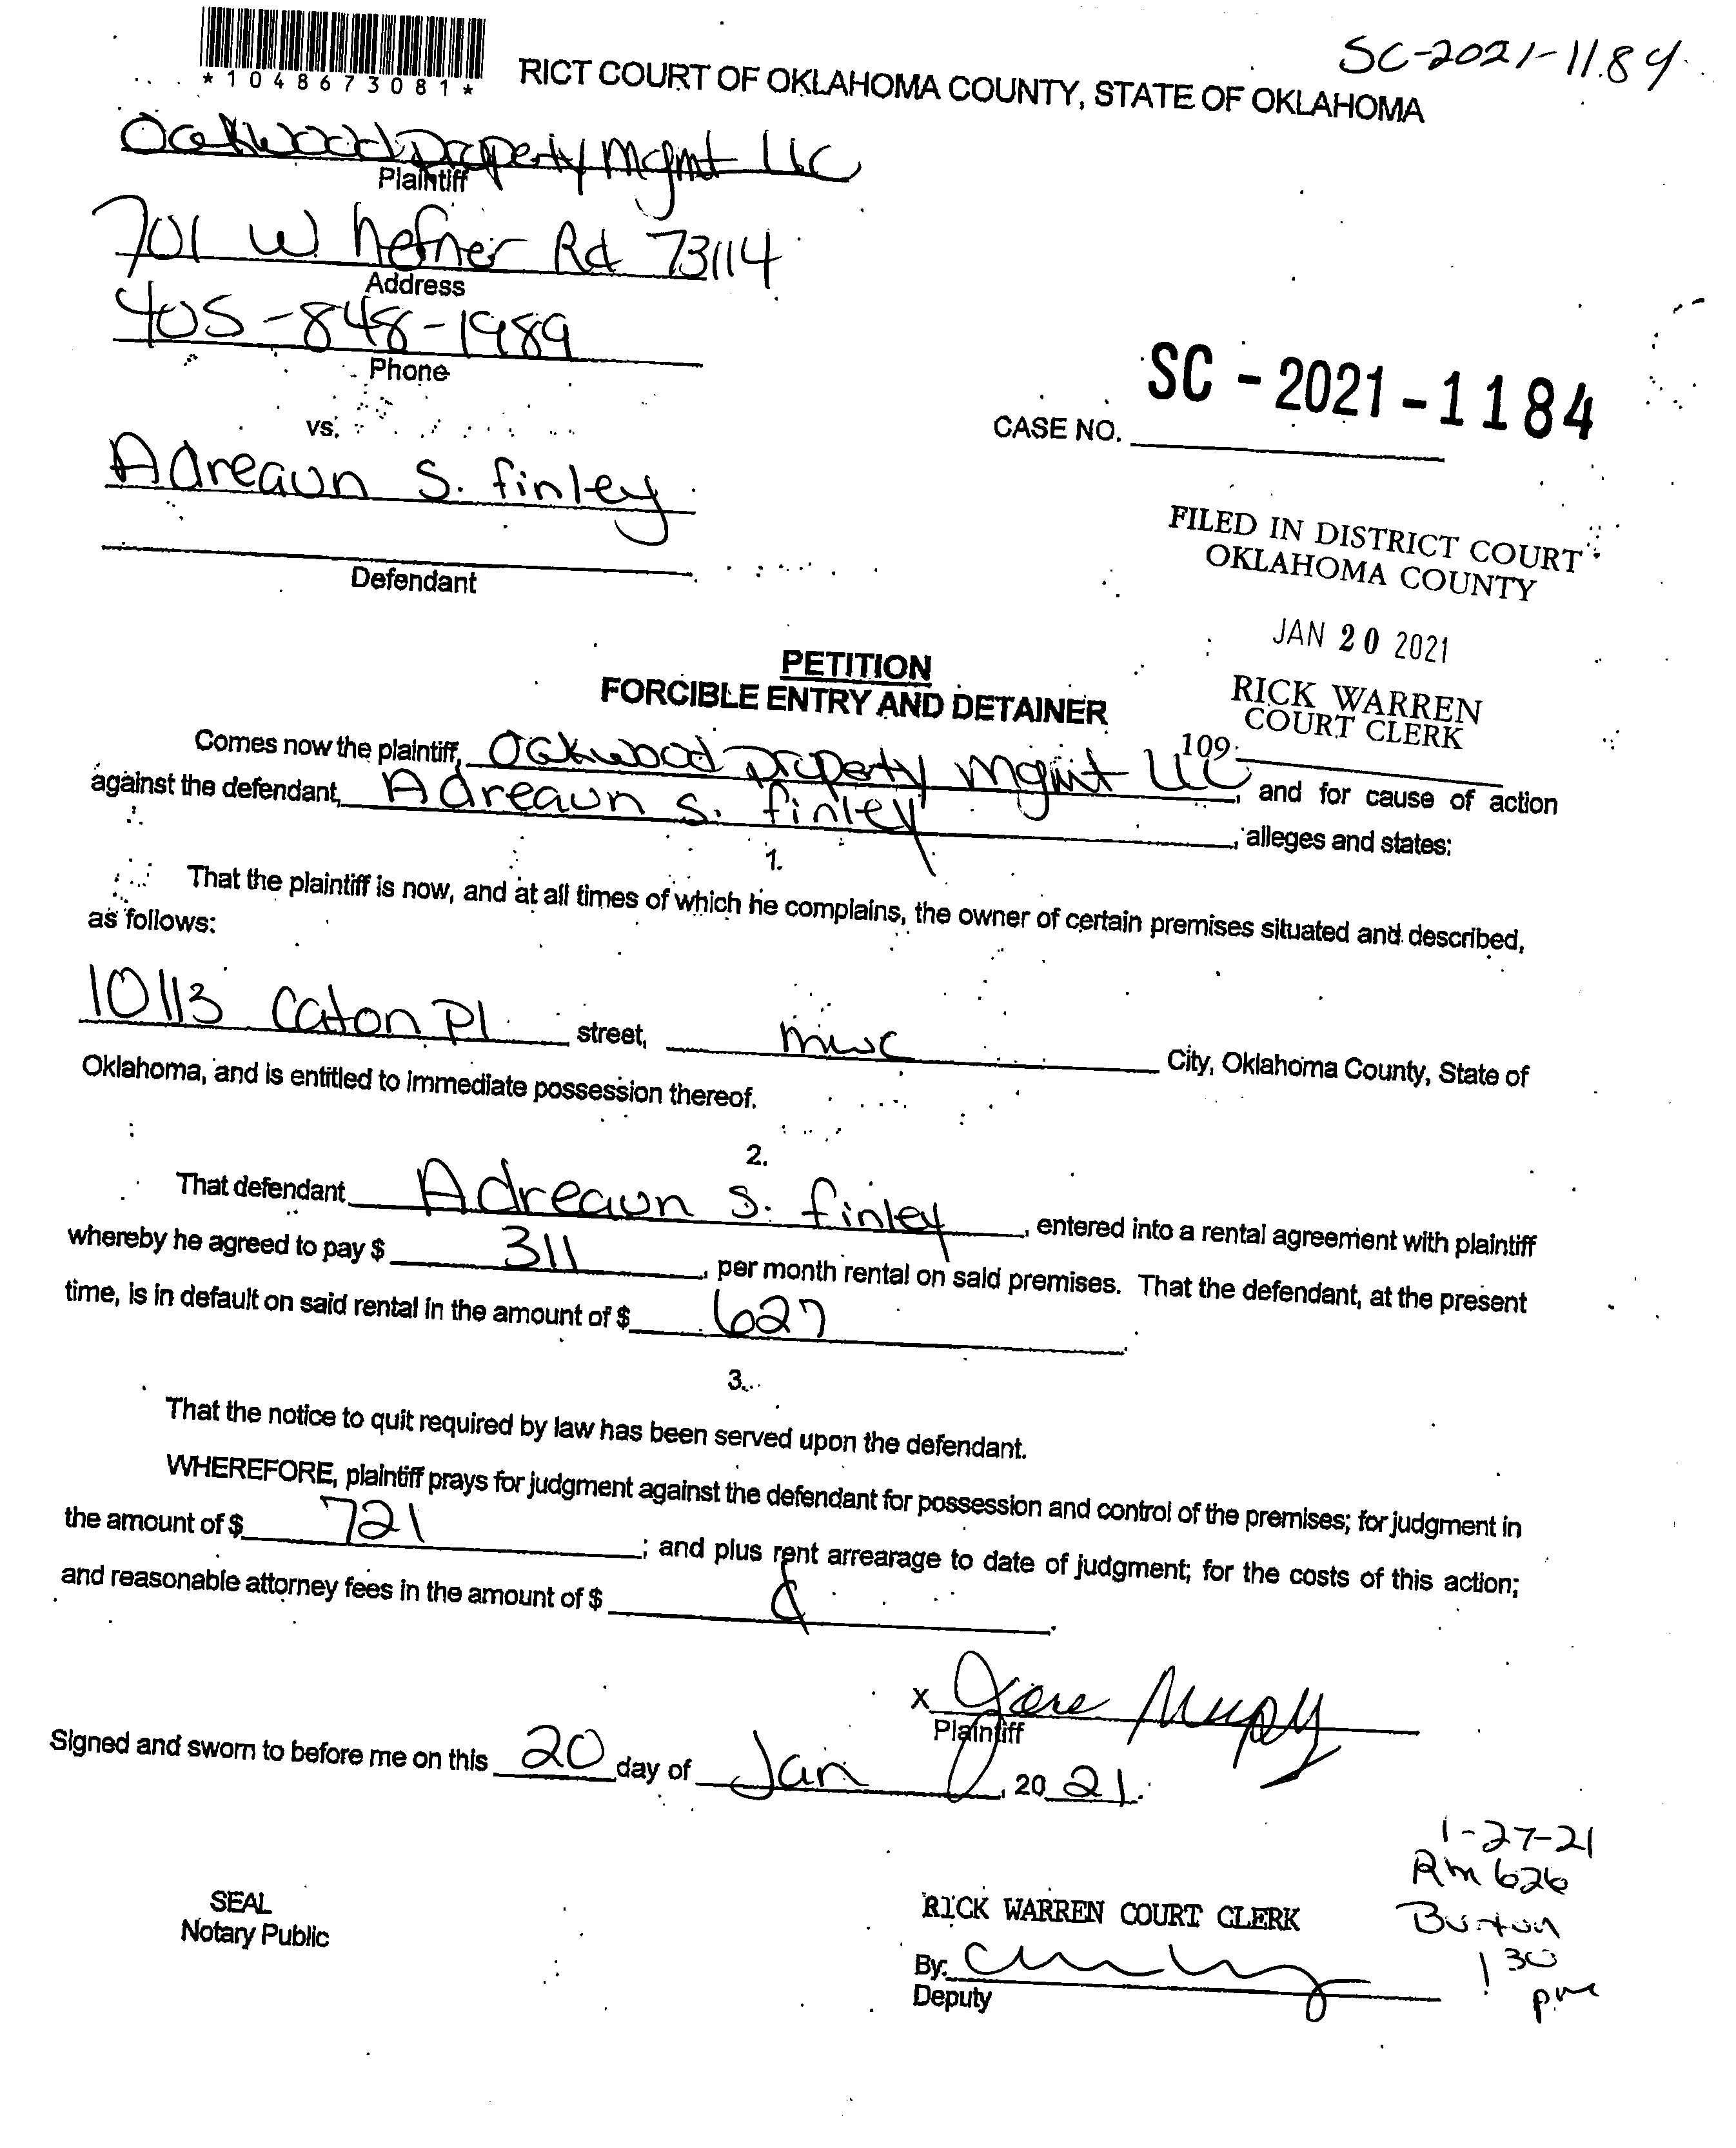 SC-2021-1184
*1048673081*
RICT COURT OF OKLAHOMA COUNTY, STATE OF OKLAHOMA
Oakwood Property Mgmt LLC
Plaintiff
701 W. hefner Rd 73114
Address
405-848-1989
Phone
vs.
CASE NO. SC-2021-1184
Adreaun S. finley
Defendant
FILED IN DISTRICT COURT
OKLAHOMA COUNTY
JAN 20 2021
RICK WARREN
COURT CLERK
109
PETITION
FORCIBLE ENTRY AND DETAINER
Comes now the plaintiff, Oakwood Property Mgmt LLC, and for cause of action
against the defendant, Adreaun S. finley, alleges and states:
1.
That the plaintiff is now, and at all times of which he complains, the owner of certain premises situated and described,
as follows:
10113 Caton Pl street, mwc City, Oklahoma County, State of
Oklahoma, and is entitled to immediate possession thereof.
2.
That defendant Adreaun S. finley, entered into a rental agreement with plaintiff
whereby he agreed to pay $ 311, per month rental on said premises. That the defendant, at the present
time, is in default on said rental in the amount of $ 627.
3.
That the notice to quit required by law has been served upon the defendant.
WHEREFORE, plaintiff prays for judgment against the defendant for possession and control of the premises; for judgment in
the amount of $ 721; and plus rent arrearage to date of judgment; for the costs of this action;
and reasonable attorney fees in the amount of $
X
Plaintiff
Signed and sworn to before me on this 20 day of Jan, 20 21.
1-27-21
Rm 626
Burton
130
pm
SEAL
Notary Public
RICK WARREN COURT CLERK
By:
Deputy